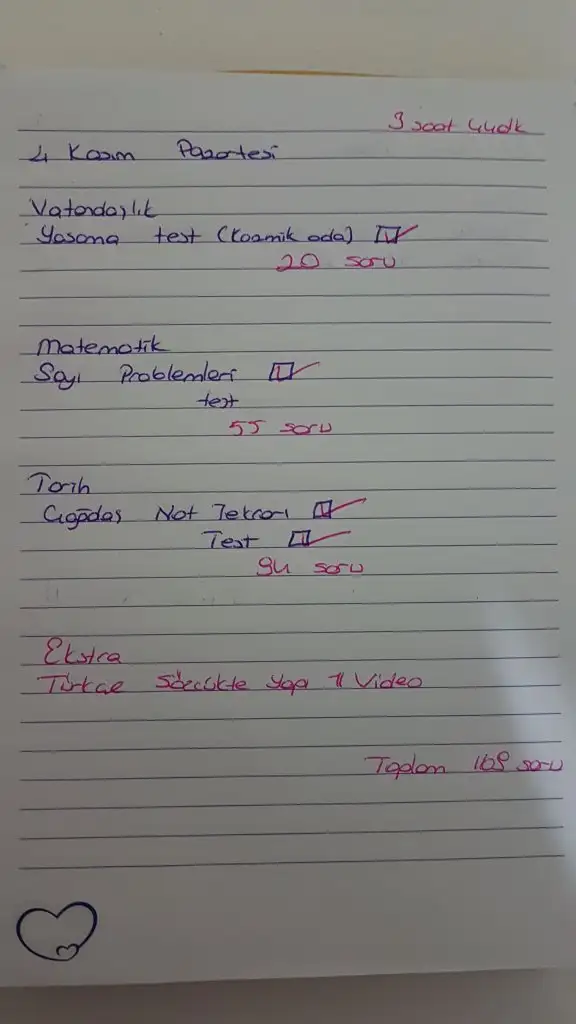 3 saat 44dk
4 Kasım Pazartesi
Vatandaşlık
Yasama test (Kozmik oda)
20 soru
Matematik
Sayı Problemleri
test
55 soru
Tarih
Çağdaş Not Tekrarı
Test
94 soru
Ekstra
Türkçe Sözcükte Yapı 1 Video
Toplam 169 soru